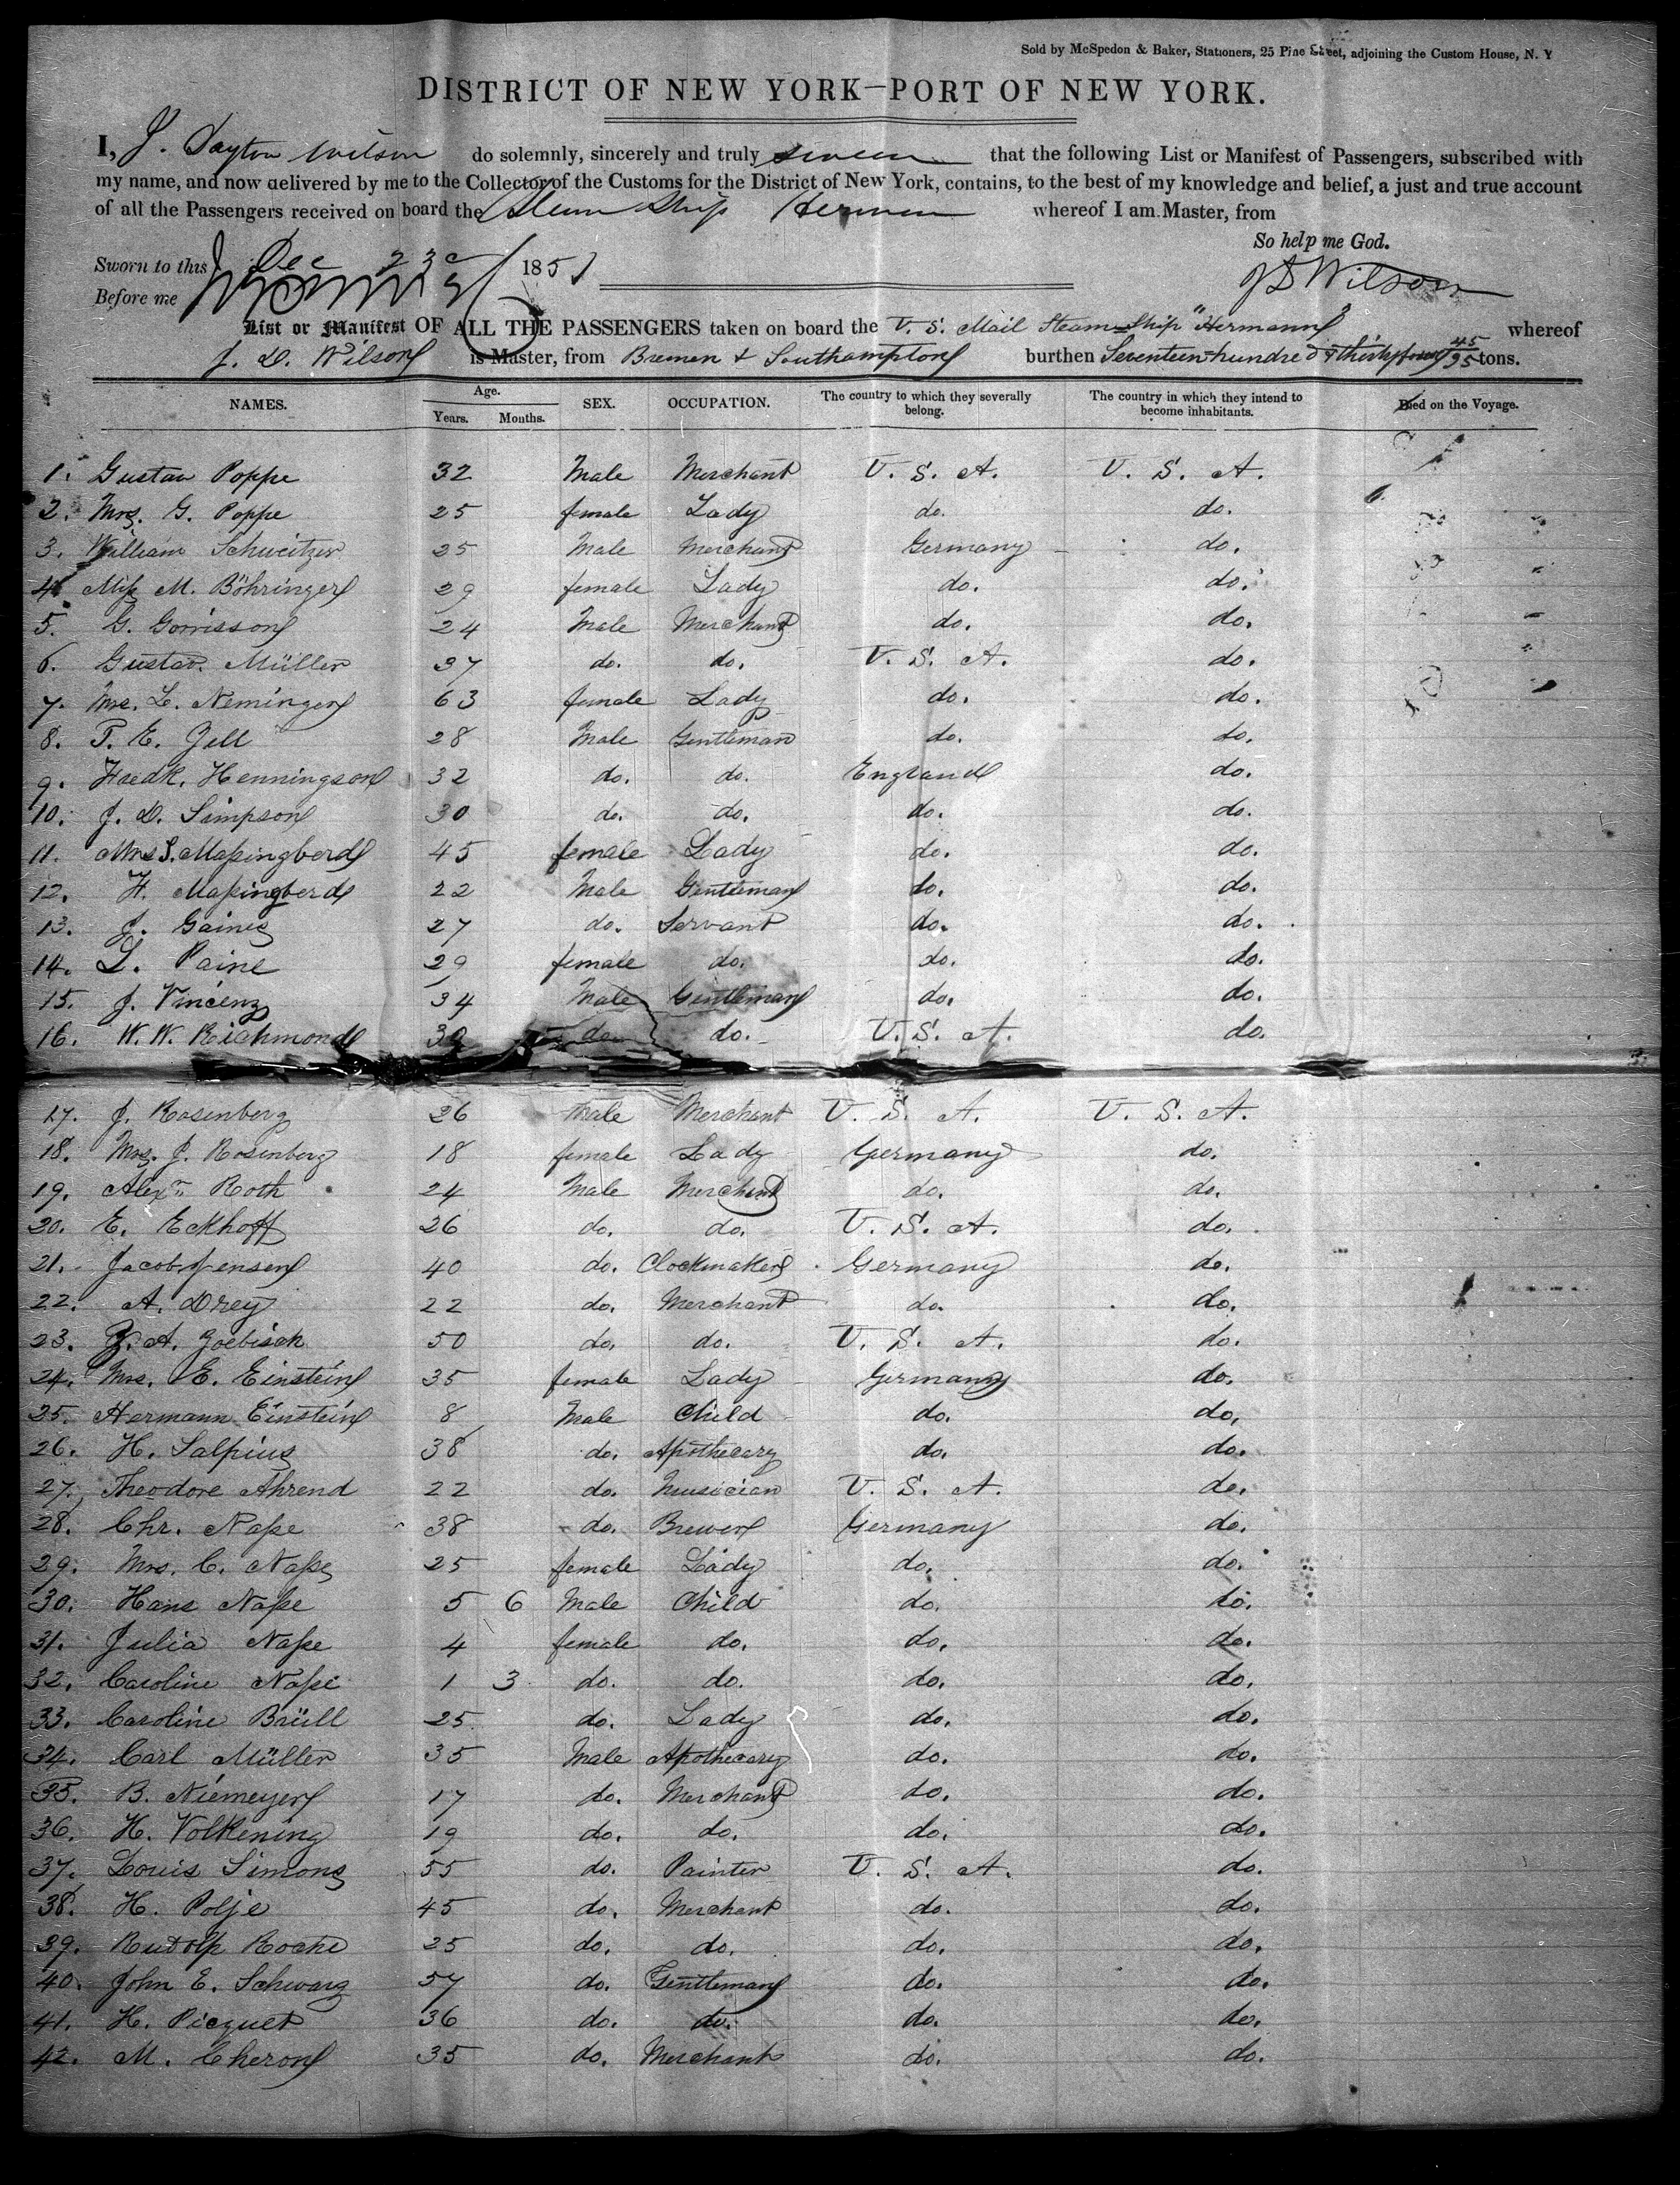 Sold by McSpedon & Baker, Stationers, 25 Pine Street, adjoining the Custom House, N. Y
DISTRICT OF NEW YORK—PORT OF NEW YORK.
I, J. Dayton Wilson do solemnly, sincerely and truly swear that the following List or Manifest of Passengers, subscribed with
my name, and now delivered by me to the Collector of the Customs for the District of New York, contains, to the best of my knowledge and belief, a just and true account
of all the Passengers received on board the Steam Ship Herman whereof I am Master, from
So help me God.
Sworn to this Dec 23d 1851
J D Wilson
Before me
List or Manifest OF ALL THE PASSENGERS taken on board the U. S. Mail Steam-Ship "Hermann" whereof
J. D. Wilson is Master, from Bremen & Southampton burthen Seventeen hundred & thirty four 45/95 tons.
NAMES. Age. Years. Months. SEX. OCCUPATION. The country to which they severally belong. The country in which they intend to become inhabitants. Died on the Voyage.
1. Gustav Poppe 32 Male Merchant U. S. A. U. S. A.
2. Mrs. G. Poppe 25 female Lady do. do.
3. William Schweitzer 25 Male Merchant Germany do.
4. Miss M. Böhringer 29 female Lady do. do.
5. G. Gorrisson 24 Male Merchant do. do.
6. Gustav. Müller 37 do. do. U. S. A. do.
7. Mrs. L. Neminger 63 female Lady do. do.
8. T. E. Zell 28 Male Gentleman do. do.
9. Fredk. Henningson 32 do. do. England do.
10. J. D. Simpson 30 do. do. do. do.
11. Mrs S. Massingberd 45 female Lady do. do.
12. H. Massingberd 22 Male Gentleman do. do.
13. J. Gaines 27 do. Servant do. do.
14. L. Paine 29 female do. do. do.
15. J. Vincenz 34 Male Gentleman do. do.
16. W. W. Richmond 30 do. do. U. S. A. do.
17. J. Rosenberg 26 Male Merchant U. S. A. U. S. A.
18. Mrs. J. Rosenberg 18 female Lady Germany do.
19. Alexr. Roth 24 Male Merchant do. do.
20. E. Eckhoff 26 do. do. U. S. A. do.
21. Jacob Jensen 40 do. Clockmaker Germany do.
22. A. Drey 22 do. Merchant do. do.
23. F. A. Zoebisch 50 do. do. U. S. A. do.
24. Mrs. E. Einstein 35 female Lady Germany do.
25. Hermann Einstein 8 Male Child do. do.
26. H. Salpius 38 do. Apothecary do. do.
27. Theodore Ahrend 22 do. Musician U. S. A. do.
28. Chr. Nasse 38 do. Brewer Germany do.
29. Mrs. C. Nasse 25 female Lady do. do.
30. Hans Nasse 5 6 Male Child do. do.
31. Julia Nasse 4 female do. do. do.
32. Caroline Nasse 1 3 do. do. do. do.
33. Caroline Brüll 25 do. Lady do. do.
34. Carl Müller 35 Male Apothecary do. do.
35. B. Niemeyer 17 do. Merchant do. do.
36. H. Volkening 19 do. do. do. do.
37. Louis Simons 55 do. Painter U. S. A. do.
38. H. Polje 45 do. Merchant do. do.
39. Rudolp Roche 25 do. do. do. do.
40. John E. Schwarz 57 do. Gentleman do. do.
41. H. Picquet 36 do. do. do. do.
42. M. Cheron 35 do. Merchant do. do.